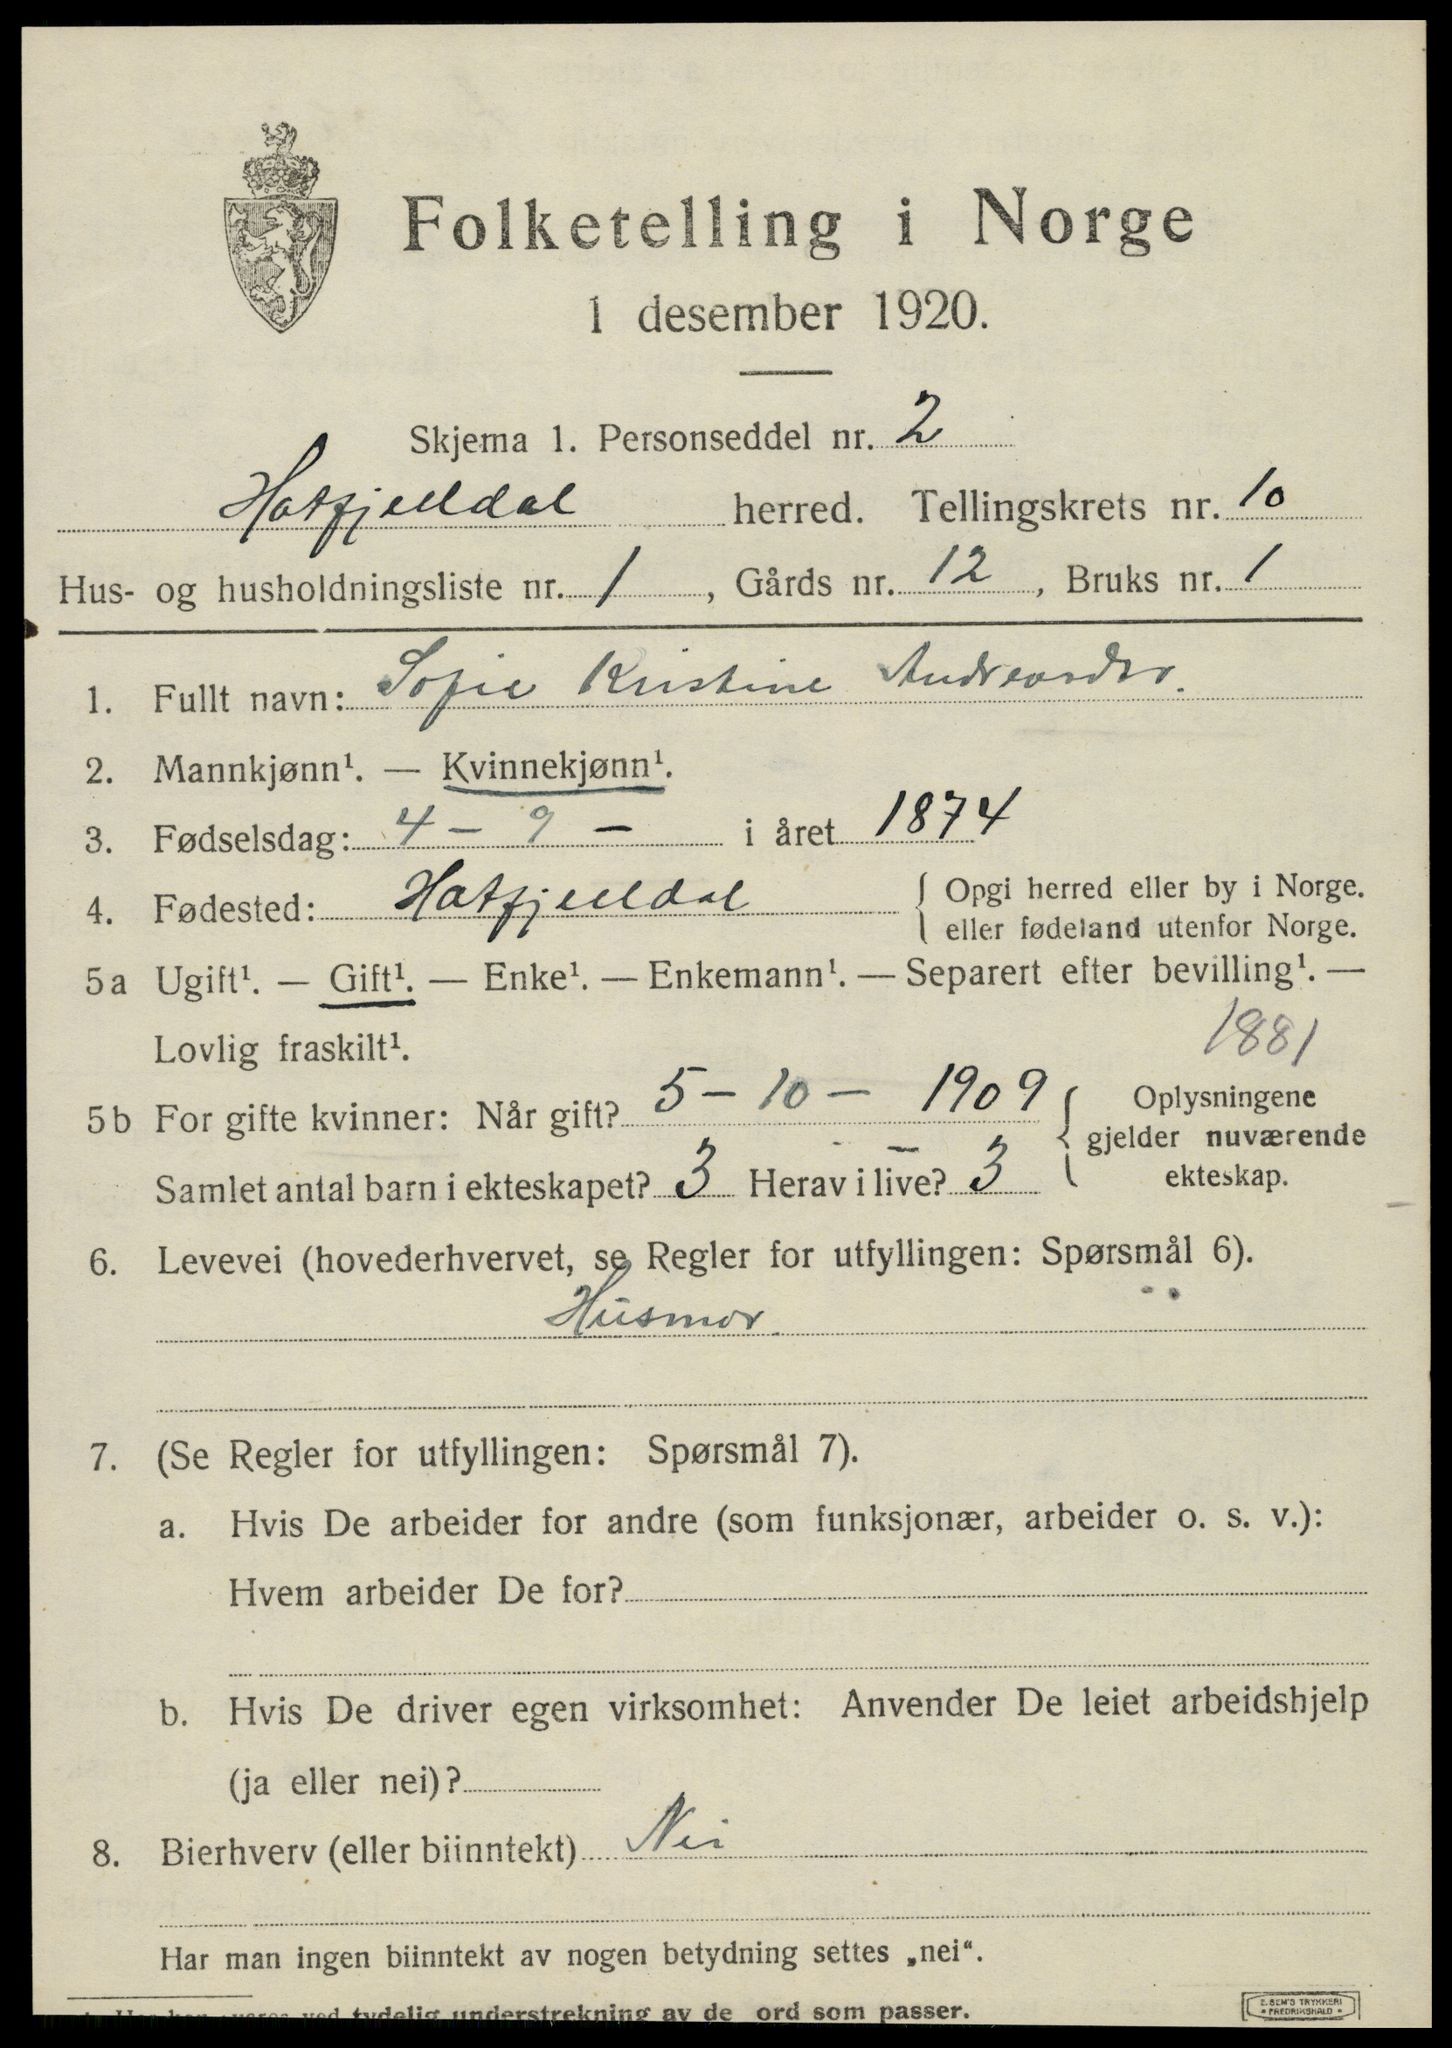 Folketelling i Norge
1 desember 1920.
Skjema 1. Personseddel nr. 2
Hatfjelldal herred. Tellingskrets nr. 10
Hus- og husholdningsliste nr. 1, Gårds nr. 12, Bruks nr. 1
1. Fullt navn: Sofie Kristine
2. Mannkjønn¹. — Kvinnekjønn¹.
3. Fødselsdag: 4 - 9 - i året 1874
4. Fødested: Hatfjelldal { Opgi herred eller by i Norge.
eller fødeland utenfor Norge.
5a Ugift¹. — Gift¹. — Enke¹. — Enkemann¹. — Separert efter bevilling¹. —
Lovlig fraskilt¹.
1881
5b For gifte kvinner: Når gift? 5 - 10 - 1909 { Oplysningene
gjelder nuværende
Samlet antal barn i ekteskapet? 3 Herav i live? 3 ekteskap.
6. Levevei (hovederhvervet, se Regler for utfyllingen: Spørsmål 6).
Husmor.
7. (Se Regler for utfyllingen: Spørsmål 7).
a. Hvis De arbeider for andre (som funksjonær, arbeider o. s. v.):
Hvem arbeider De for?
b. Hvis De driver egen virksomhet: Anvender De leiet arbeidshjelp
(ja eller nei)?
8. Bierhverv (eller biinntekt) Nei
Har man ingen biinntekt av nogen betydning settes „nei“.
ved tydelig understrekning av de ord som passer.
E. SEM'S TRYKKERI
FREDRIKSHALD